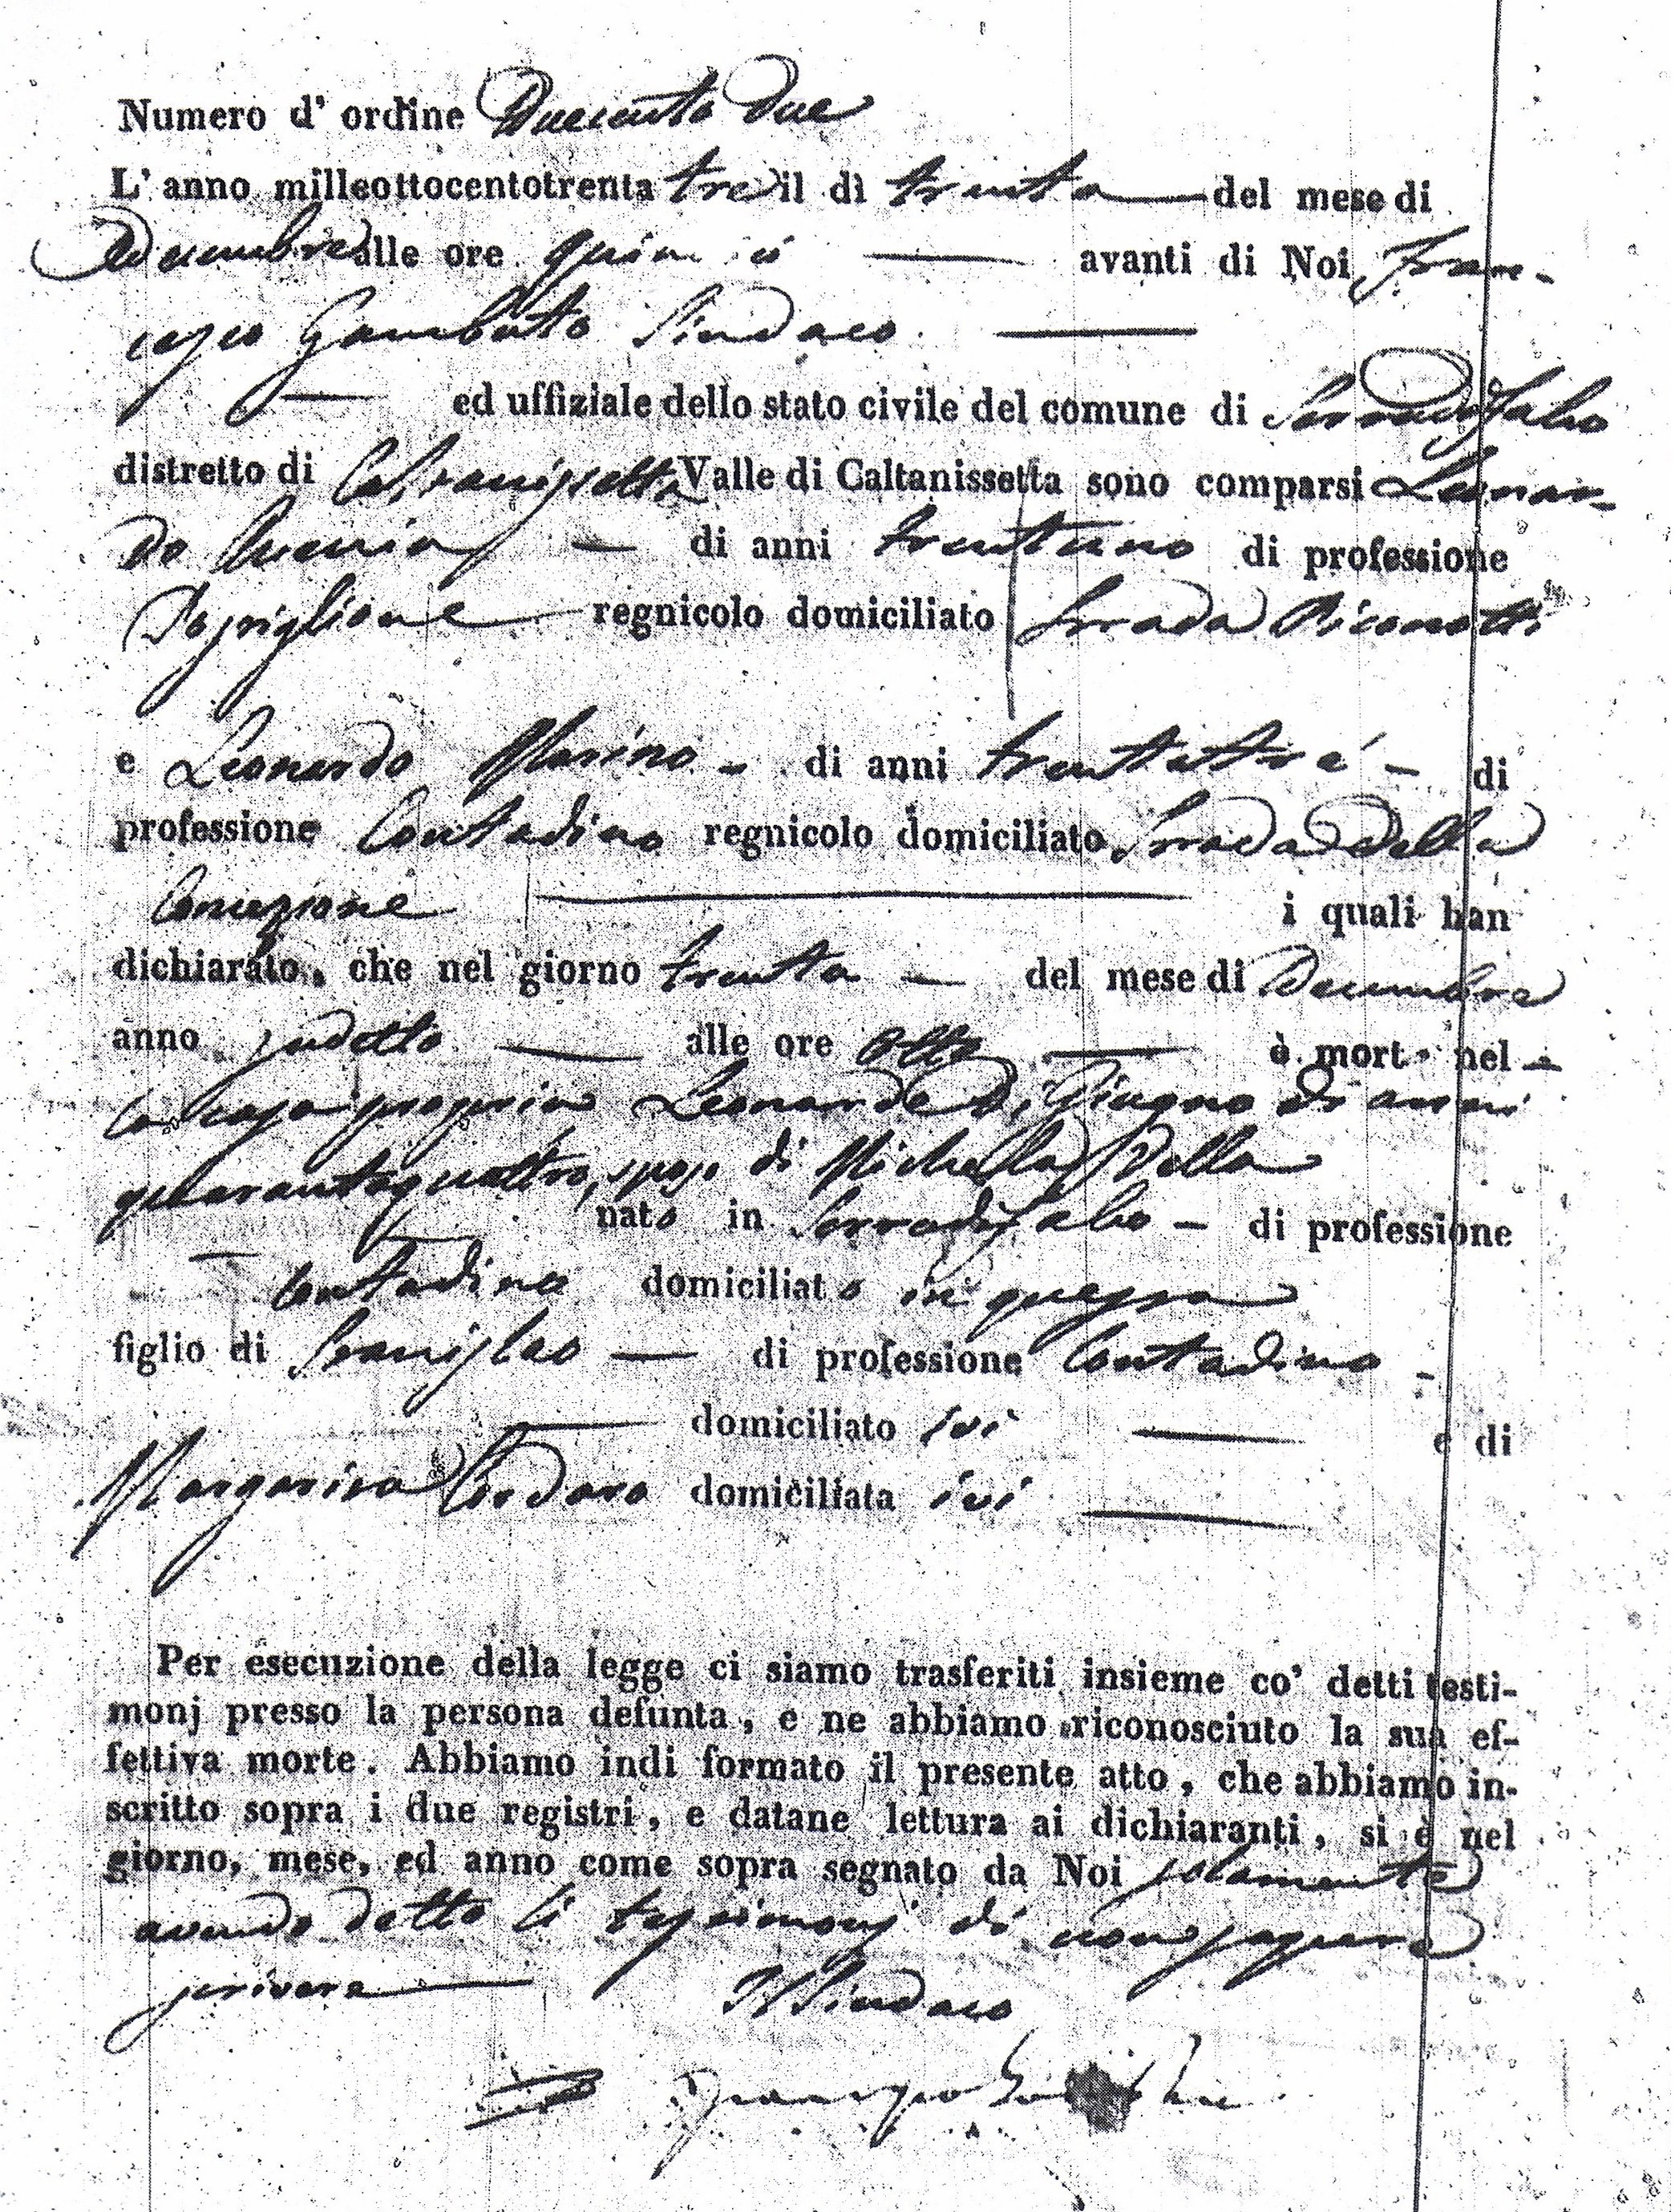 Numero d' ordine Duecento due
L' anno milleottocentotrenta tre il dì trenta del mese di
Decembre alle ore quin ci avanti di Noi Fran-
cesco Gambuto Sindaco
ed uffiziale dello stato civile del comune di Serradifalco
distretto di Caltanissetta Valle di Caltanissetta sono comparsi Leonar-
do di anni trentuno di professione
regnicolo domiciliato Strada
e Leonardo Marino di anni trentatrè di
professione Contadino regnicolo domiciliato Strada della
Concezione i quali han
dichiarato, che nel giorno trenta del mese di Decembre
anno sudetto alle ore otto è mort nel
la casa propria Leonardo Di Giugno di anni
quarantaquattro, sposo di Michella Vella
nato in Serradifalco di professione
Contadino domiciliato in questa
figlio di Stanislao di professione Contadino
domiciliato ivi e di
Margarita Cordaro domiciliata ivi
Per esecuzione della legge ci siamo trasferiti insieme co' detti testi-
monj presso la persona defunta, e ne abbiamo riconosciuto la sua ef-
fettiva morte. Abbiamo indi formato il presente atto, che abbiamo in-
scritto sopra i due registri, e datane lettura ai dichiaranti, si è nel
giorno, mese, ed anno come sopra segnato da Noi solamente
avendo detto li testimonj di non sapere
scrivere Il Sindaco
Francesco